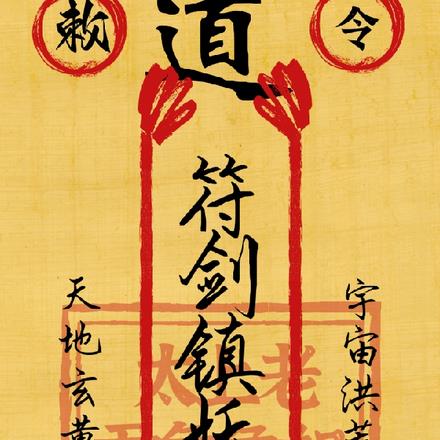 敕
道
令
符剑镇妖
宇宙洪荒
天地玄黄
太上老